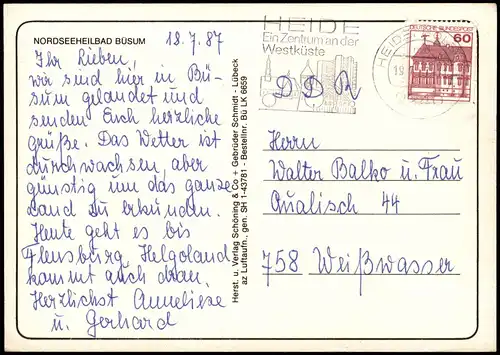 NORDSEEHEILBAD BÜSUM
18.7.87
Ihr Lieben,
wir sind hier in Bü-
sum gelandet und
senden Euch herzliche
Grüße. Das Wetter ist
durchwachsen, aber
günstig um das ganze
Land zu erkunden.
Heute geht es bis
Flensburg, Helgoland
kommt auch dran.
Herzlichst Anneliese
u. Gerhard
Herst. u. Verlag Schöning & Co + Gebrüder Schmidt - Lübeck
az Luftaufn., gen. SH 1-43781 - Bestellnr. Bü LK 6659
HEIDE
Ein Zentrum an der
Westküste
HEIDE
19.
DEUTSCHE BUNDESPOST
60
DDR
Herrn
Walter Balko u. Frau
Qualisch 44
758 Weißwasser